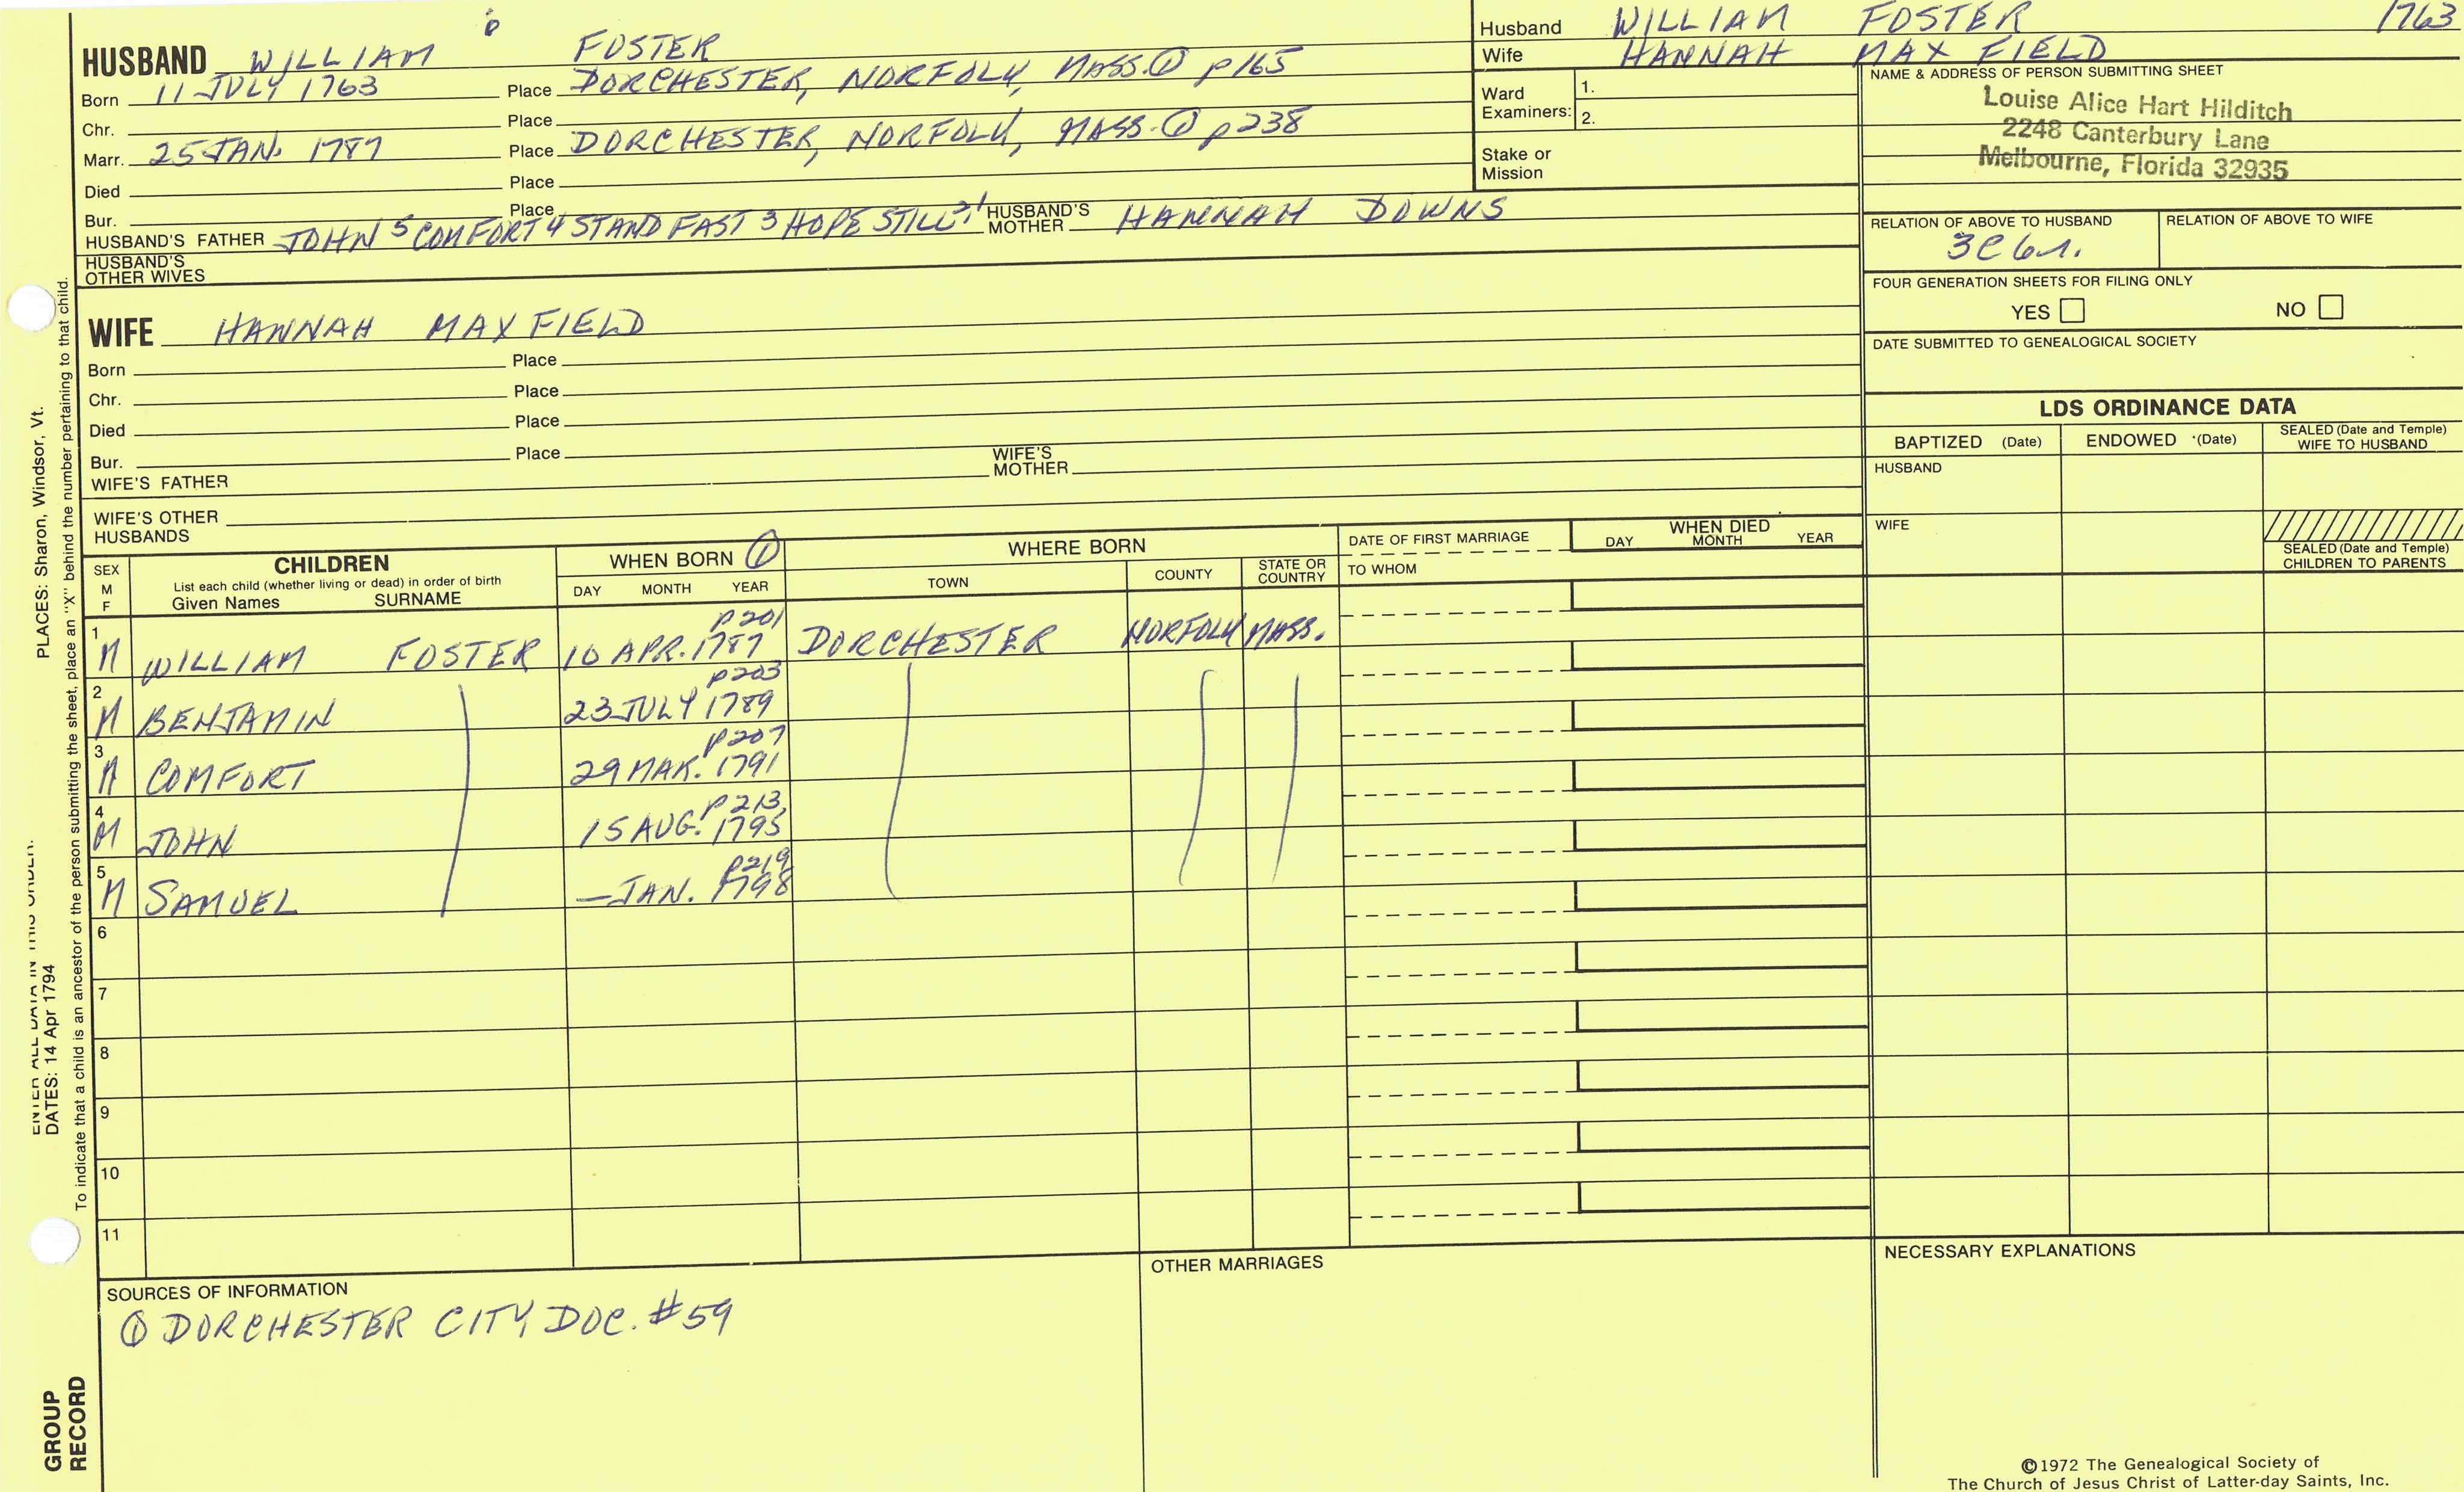 HUSBAND WILLIAM 6 FOSTER
Born 11 JULY 1763 Place DORCHESTER, NORFOLK, MASS. ① p165
Chr. Place
Marr. 25 JAN. 1787 Place DORCHESTER, NORFOLK, MASS. ① p238
Died Place
Bur. Place
HUSBAND'S FATHER JOHN 5 COMFORT 4 STAND FAST 3 HOPE STILL 2,1 HUSBAND'S MOTHER HANNAH DOWNS
HUSBAND'S OTHER WIVES
Husband WILLIAM FOSTER 1763
Wife HANNAH MAX FIELD
Ward Examiners: 1.
2.
Stake or Mission
NAME & ADDRESS OF PERSON SUBMITTING SHEET
Louise Alice Hart Hilditch
2248 Canterbury Lane
Melbourne, Florida 32935
RELATION OF ABOVE TO HUSBAND RELATION OF ABOVE TO WIFE
3C 6r.
FOUR GENERATION SHEETS FOR FILING ONLY
YES NO
DATE SUBMITTED TO GENEALOGICAL SOCIETY
WIFE HANNAH MAX FIELD
Born Place
Chr. Place
Died Place
Bur. Place
WIFE'S FATHER WIFE'S MOTHER
WIFE'S OTHER HUSBANDS
LDS ORDINANCE DATA
BAPTIZED (Date) ENDOWED (Date) SEALED (Date and Temple) WIFE TO HUSBAND
HUSBAND
WIFE
SEALED (Date and Temple) CHILDREN TO PARENTS
SEX M F CHILDREN WHEN BORN ① WHERE BORN DATE OF FIRST MARRIAGE WHEN DIED
List each child (whether living or dead) in order of birth
Given Names SURNAME DAY MONTH YEAR TOWN COUNTY STATE OR COUNTRY TO WHOM DAY MONTH YEAR
p201
1 M WILLIAM FOSTER 10 APR. 1787 DORCHESTER NORFOLK MASS.
p203
2 M BENJAMIN 23 JULY 1789
p207
3 M COMFORT 29 MAR. 1791
p213
4 M JOHN 15 AUG. 1795
p219
5 M SAMUEL — JAN. 1798
6
7
8
9
10
11
SOURCES OF INFORMATION
① DORCHESTER CITY DOC. #59
OTHER MARRIAGES
NECESSARY EXPLANATIONS
©1972 The Genealogical Society of
The Church of Jesus Christ of Latter-day Saints, Inc.
PLACES: Sharon, Windsor, Vt.
ENTER ALL DATA IN THIS ORDER:
DATES: 14 Apr 1794
To indicate that a child is an ancestor of the person submitting the sheet, place an "X" behind the number pertaining to that child.
GROUP
RECORD